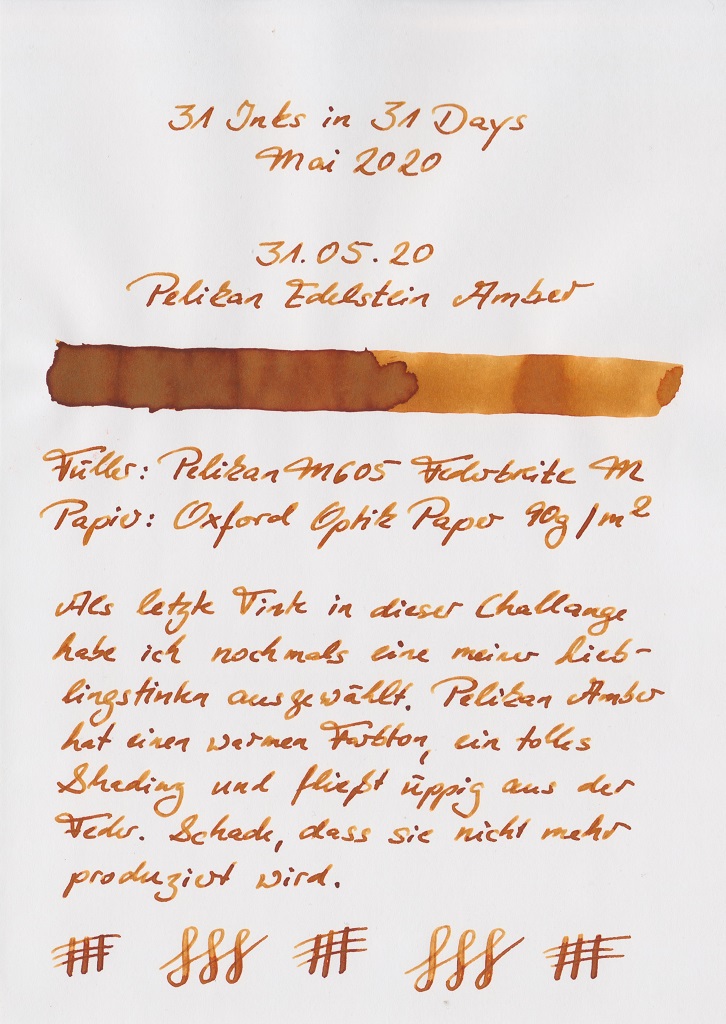 31 Inks in 31 Days
Mai 2020
31.05.20
Pelikan Edelstein Amber
Füller: Pelikan M605 Federbreite M
Papier: Oxford Optik Paper 90g/m²
Als letzte Tinte in dieser Challange
habe ich nochmals eine meiner Lieb-
lingstinten ausgewählt. Pelikan Amber
hat einen warmen Farbton, ein tolles
Shading und fließt üppig aus der
Feder. Schade, dass sie nicht mehr
produziert wird.